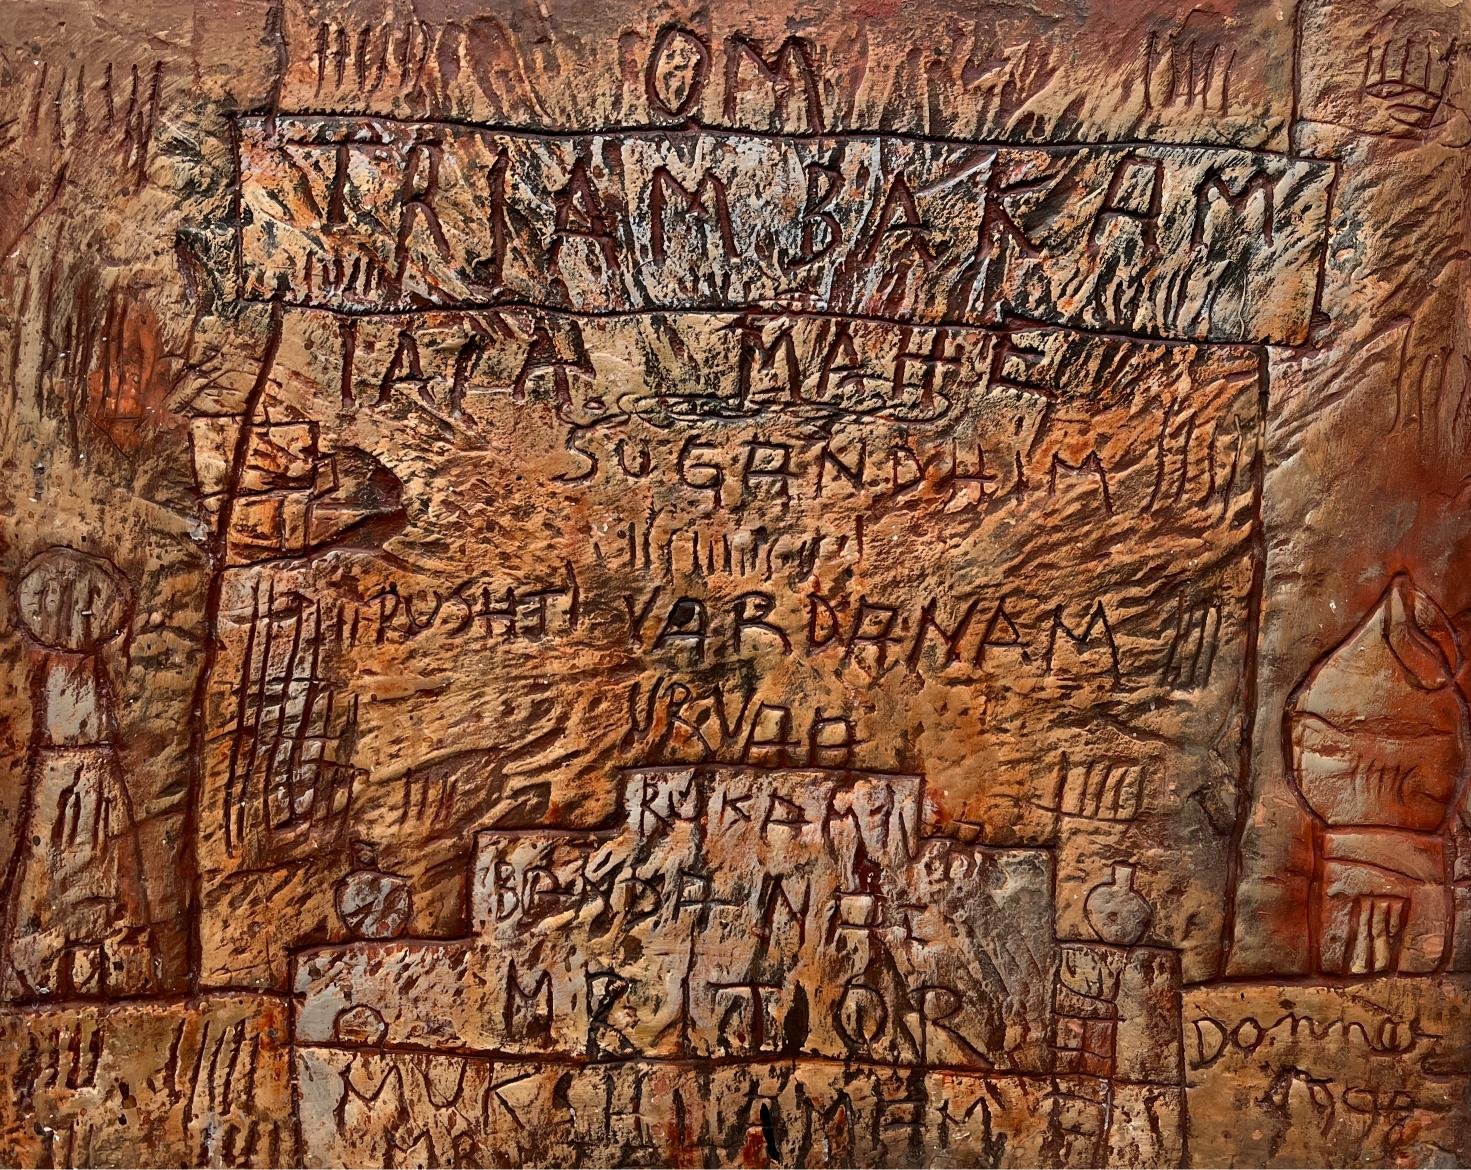 OM
TRIAM BAKAM
IAJA MAHE
SUGANDHIM
PUSHTI VARDANAM
URVAA
RUKAMI
BANDANAE
MRITOR
MUK HIAMAM A
Donnac